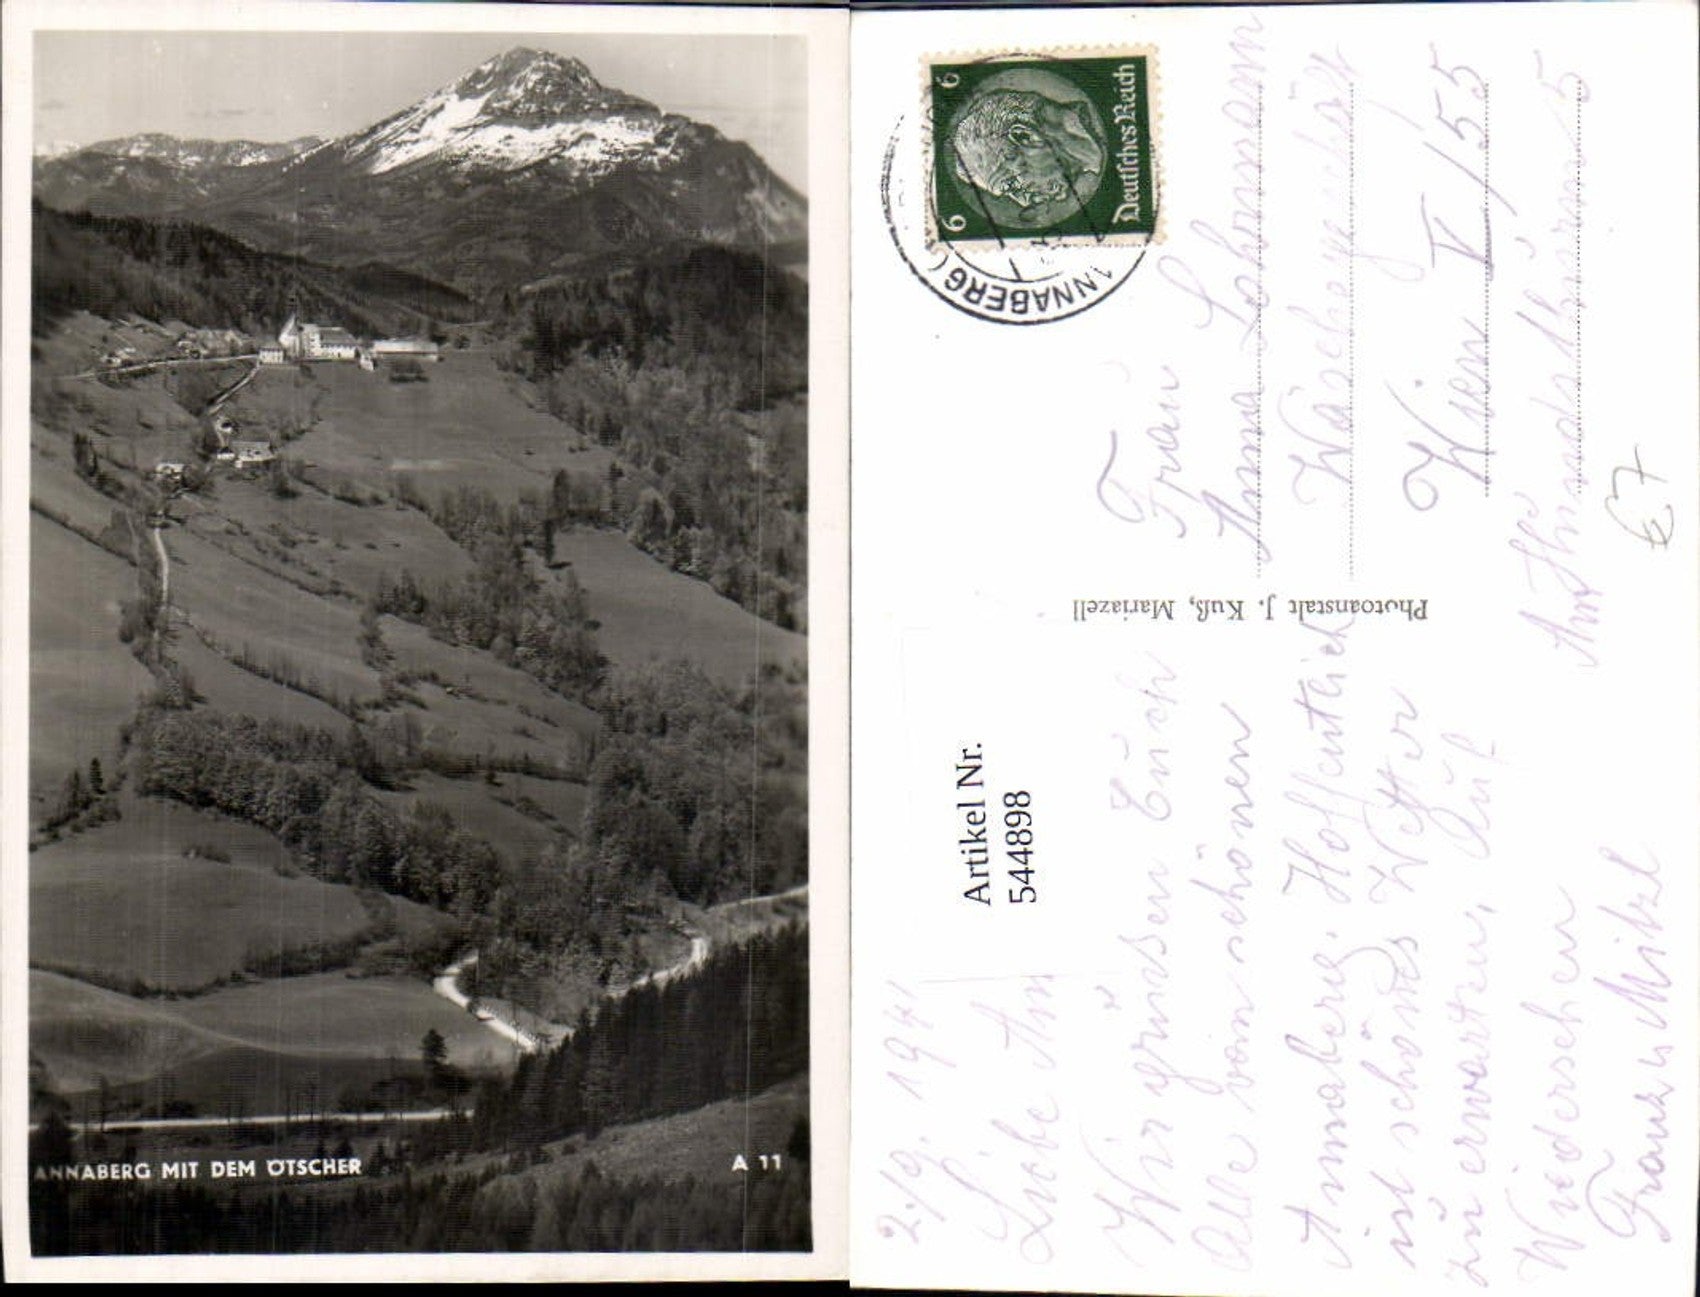 ANNABERG MIT DEM ÖTSCHER
A 11
6
6
Deutsches Reich
ANNABERG
Frau
Anna Lahrmann
Wäschegeschäft
Wien V/55
Am Hundsthurm 5
€7
Photoanstalt J. Kuß, Mariazell
Artikel Nr.
544898
2./9. 1941
Liebe
Wir grüssen Euch
Alle vom schönen
Annaberg. Hoffentlich
ist schönes Wetter
zu erwarten. Auf
Wiedersehen
Franz u Mitzl